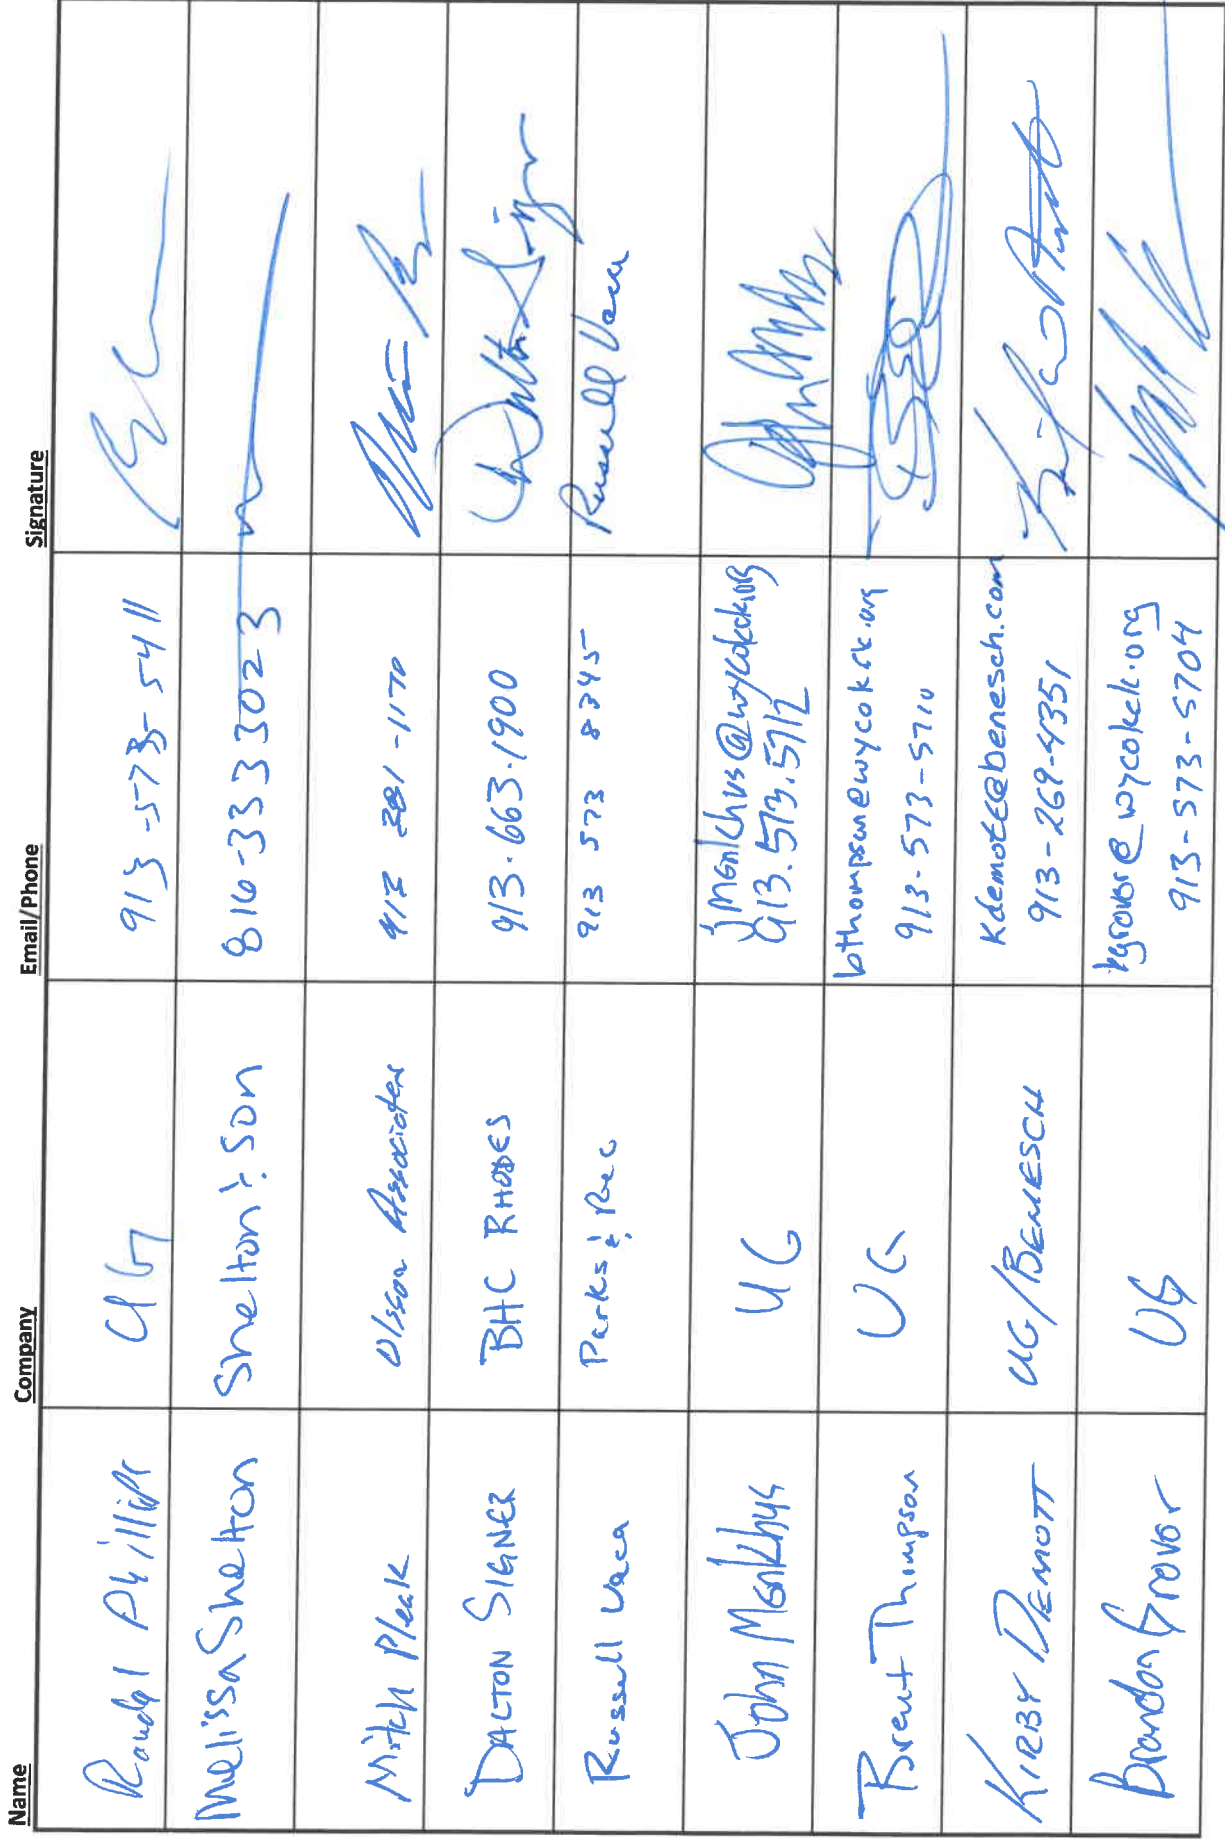 Name Company Email/Phone Signature
Randal Phillips UG 913-573-5411
Melissa Shelton Shelton & Son 816-333 3023
Mitch Pleak Olsson Associates 913 381-1170
DALTON SIGNER BHC RHODES 913.663.1900 Dalton Signer
Russell Vaca Parks & Rec 913 573 8345 Russell Vaca
John Monkhus UG jmonkhus@wycokck.org
913.573.5712
Brent Thompson UG bthompson@wycokck.org
913-573-5710
KIRBY DEMOTT UG/BENESCH kdemott@benesch.com
913-269-4351
Brandon Grover UG bgrover@wycokck.org
913-573-5704